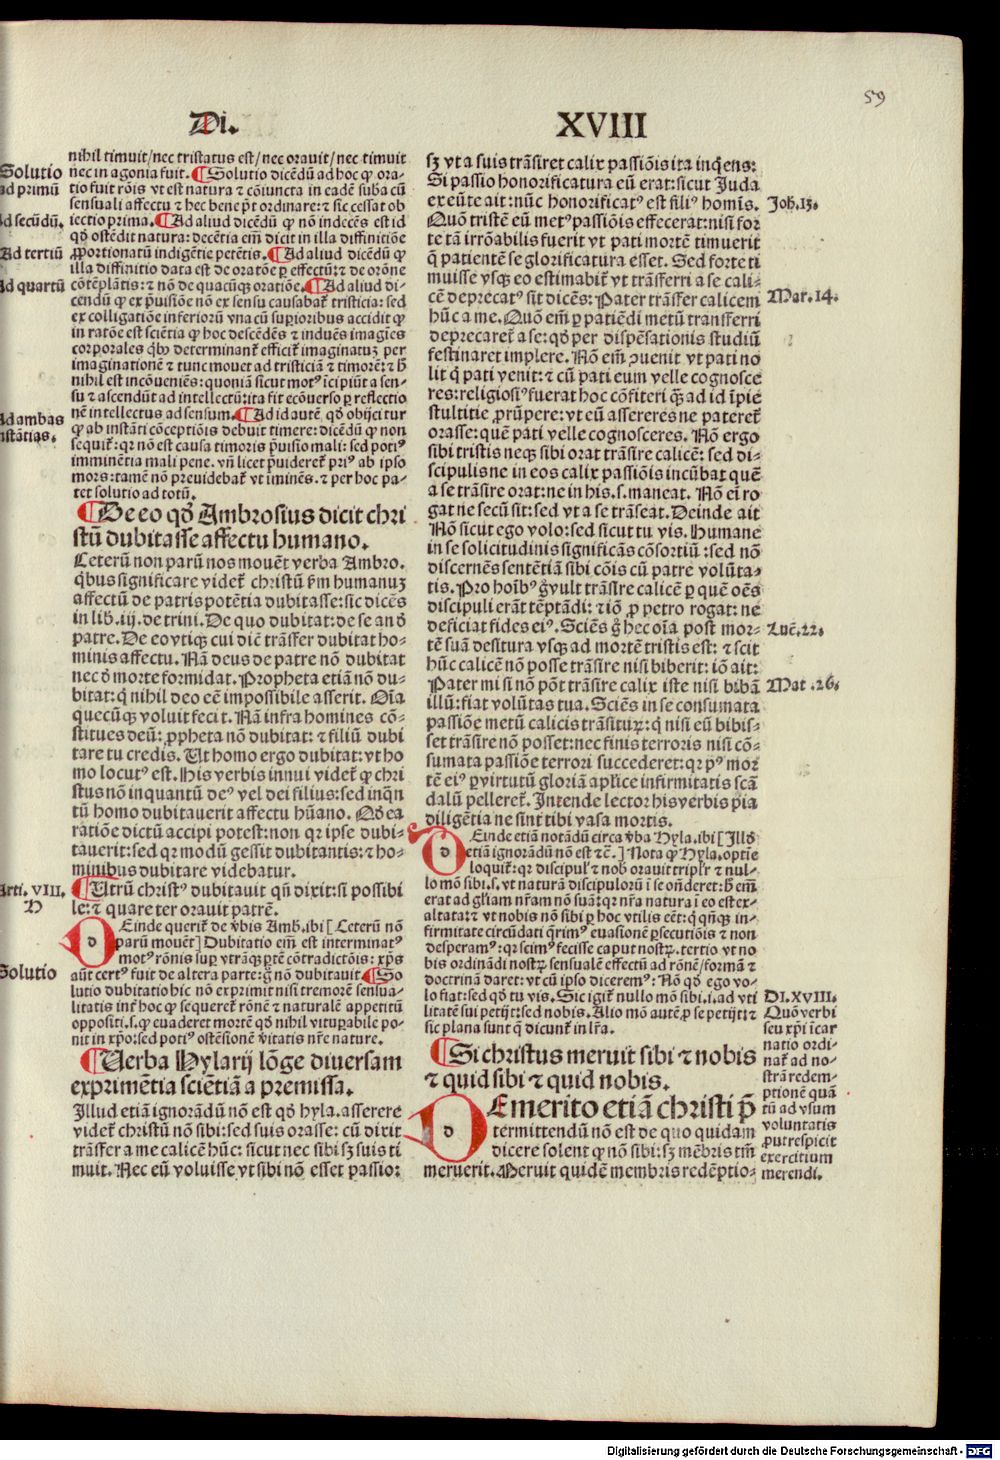 59
Di. XVIII
nihil timuit/nec tristatus est/nec orauit/nec timuit
nec in agonia fuit. ¶Solutio dicēdū ad hoc ꝙ ora-
tio fuit rōis vt est natura ⁊ cōiuncta in eadē suba cū
sensuali affectu ⁊ hec bene p̄t ordinare: ⁊ sic cessat ob
iectio prima. ¶Ad aliud dicēdū ꝙ nō indecēs est id
qd̄ ostēdit natura: decētia em̄ dicit in illa diffinitiōe
ꝓportionatū indigētie petētis. ¶Ad aliud dicēdū ꝙ
illa diffinitio data est de oratōe ꝑ effectū: ⁊ de orōne
cōtēplātis: ⁊ nō de quacūqꝫ oratiōe. ¶Ad aliud di-
cendū ꝙ ex p̄uisiōe nō ex sensu causabat᷑ tristicia: sed
ex colligatiōe inferiorū vna cū suꝑioribus accidit ꝙ
in ratōe est sciētia ꝙ hoc descēdēs ⁊ induēs imagīes
corporales qbꝰ determinant᷑ efficit᷑ imaginatuꝫ per
imaginationē ⁊ tunc mouet ad tristiciā ⁊ timorē: ⁊ h̄
nihil est incōueniēs: quoniā sicut motꝰ īcipiūt a sen-
su ⁊ ascendūt ad intellectū: ita fit ecōuerso ꝑ reflectio
nē intellectus ad sensum. ¶Ad id autē qd̄ obijcitur
ꝙ ab instāti cōceptiōis debuit timere: dicēdū ꝙ non
sequit᷑: qr nō est causa timoris p̄uisio mali: sed potiꝰ
imminētia mali pene. vn̄ licet p̄uideret᷑ priꝰ ab ipso
mors: tamē nō preuidebat᷑ vt iminēs. ⁊ per hoc pa-
tet solutio ad totū.
¶De eo qd̄ Ambrosius dicit chri
stū dubitasse affectu humano.
Ceterū non parū nos mouēt verba Ambro.
qb̄us significare videt᷑ christū s̄m humanuꝫ
affectū de patris potētia dubitasse: sic dicēs
in lib. iij. de trini. De quo dubitat: de se an d̄
patre. De eo vtiqꝫ cui dicit trāsfer dubitat ho-
minis affectu. Nā deus de patre nō dubitat
nec d̄ morte formidat. Propheta etiā nō du-
bitat: q nihil deo eē impossibile asserit. Oīa
quecūqꝫ voluit fecit. Nā infra homines cō-
stitues deū: ꝓpheta nō dubitat: ⁊ filiū dubi
tare tu credis. Ut homo ergo dubitat: vt ho
mo locutꝰ est. His verbis innui videt᷑ ꝙ chri
stus nō inquantū deꝰ vel dei filius: sed inqn̄
tū homo dubitauerit affectu hūano. Qd̄ ea
ratiōe dictū accipi potest: non qr ipse dubi-
tauerit: sed qr modū gessit dubitantis: ⁊ ho-
minibus dubitare videbatur.
¶Utrū christꝰ dubitauit qn̄ dixit: si possibi
le: ⁊ quare ter orauit patrē.
Deinde querit᷑ de v̄bis Amb. ibi [Ceterū nō
parū mouēt] Dubitatio em̄ est interminatꝰ
motꝰ rōnis suꝑ vtrāqꝫ ꝑtē cōtradictōis: xp̄s
aūt certꝰ fuit de altera parte: g̊ nō dubitauit. ¶So
lutio dubitatio hic nō exprimit nisi tremorē sensua-
litatis int᷑ hoc ꝙ sequeret᷑ rōnē ⁊ naturalē appetitū
oppositi. s. ꝙ euaderet mortē qd̄ nihil vituꝑabile po-
nit in xp̄o: sed potiꝰ ostēsionē v̄itatis nr̄e nature.
¶Uerba Hylarij lōge diuersam
exprimētia sciētiā a premissa.
Illud etiā ignorādū nō est qd̄ hyla. asserere
videt᷑ christū nō sibi: sed suis orasse: cū dixit
trāsfer a me calicē hūc: sicut nec sibi sꝫ suis ti
muit. Nec eū voluisse vt sibi nō esset passio:
sꝫ vt a suis trāsiret calix passiōis ita inqēns:
Si passio honorificatura eū erat: sicut Juda
exeūte ait: nūc honorificatꝰ est filiꝰ homīs.
Quō tristē eū metꝰ passiōis effecerat: nisi for
te tā irrōabilis fuerit vt pati mortē timuerit
q patientē se glorificatura esset. Sed forte ti
muisse vsqꝫ eo estimabit᷑ vt trāsferri a se cali-
cē deprecatꝰ sit dicēs: Pater trāsfer calicem
hūc a me. Quō em̄ ꝑ patiēdi metū transferri
deprecaret᷑ a se: qd̄ per dispēsationis studiū
festinaret implere. Nō em̄ ꝯuenit vt pati no
lit q pati venit: ⁊ cū pati eum velle cognosce
res: religiosiꝰ fuerat hoc cōfiteri qꝫ ad id īpie
stultitie ꝓrūpere: vt eū assereres ne pateret᷑
orasse: quē pati velle cognosceres. Nō ergo
sibi tristis neqꝫ sibi orat trāsire calicē: sed di-
scipulis ne in eos calix passiōis incūbat quē
a se trāsire orat: ne in his. s. maneat. Nō ei ro
gat ne secū sit: sed vt a se trāseat. Deinde ait
Nō sicut ego volo: sed sicut tu vis. Humane
in se solicitudinis significās cōsortiū: sed nō
discernēs sentētiā sibi cōis cū patre volūta-
tis. Pro hoīb̄ g̊ vult trāsire calicē ꝑ quē oēs
discipuli erāt tēptādi: ⁊ iō ꝓ petro rogat: ne
deficiat fides eiꝰ. Sciēs g̊ hec oīa post mor-
tē suā desitura vsqꝫ ad mortē tristis est: ⁊ scit
hūc calicē nō posse trāsire nisi biberit: iō ait:
Pater mi si nō pōt trāsire calix iste nisi bibā
illū: fiat volūtas tua. Sciēs in se consumata
passiōe metū calicis trāsituꝝ: q nisi eū bibis-
set trāsire nō posset: nec finis terroris nisi cō-
sumata passiōe terrori succederet: qr pꝰ mor
tē eiꝰ ꝑ virtutū gloriā apl̄ice infirmitatis scā
dalū pelleret᷑. Intende lector his verbis pia
diligētia ne sint tibi vasa mortis.
Deinde etiā notādū circa v̄ba Hyla. ibi [Illd̄
etiā ignorādū nō est ⁊c̄.] Nota ꝙ Hyla. optīe
loquit᷑: qr discipul᷑ ⁊ nob̄ orauit tripl᷑r ⁊ nul-
lo mō sibi. s. vt naturā discipulorū ī se on̄deret: h̄ em̄
erat ad gl̄iam nr̄am nō suā: qr nr̄a natura ī eo est ex-
altata: ⁊ vt nobis nō sibi ꝑ hoc vtilis eēt: q qn̄qꝫ in-
firmitate circūdati q̄rimꝰ euasionē ꝑsecutiōis ⁊ non
desperamꝰ: qr scimꝰ fecisse caput nostꝝ. tertio vt no
bis ordinādi nostꝝ sensualē effectū ad rōnē/formā ⁊
doctrinā daret: vt cū ipso diceremꝰ: Nō qd̄ ego vo-
lo fiat: sed qd̄ tu vis. Sic igit᷑ nullo mō sibi. i. ad vti
litatē sui petijt: sed nobis. Alio mō autē ꝓ se petijt: ⁊
sic plana sunt q dicunt᷑ in lr̄a.
¶Si christus meruit sibi ⁊ nobis
⁊ quid sibi ⁊ quid nobis.
De merito etiā christi p̄
termittendū nō est de quo quidam
dicere solent ꝙ nō sibi: sꝫ mēbris tm̄
meruerit. Meruit quidē membris redēptio-
Solutio
ad primū
Ad secūdū.
Ad tertiū
Ad quartū
Ad ambas
instātias.
Arti. VIII.
Solutio
Joh. 13.
Mar. 14.
Luc̄. 22.
Mat. 26.
DI. XVIII.
Quō verbi
seu xp̄i īcar
natio ordi-
nat᷑ ad no-
strā redem-
ptionē quā
tū ad vsum
voluntatis
ꝓut respicit
exercitium
merendi.
Digitalisierung gefördert durch die Deutsche Forschungsgemeinschaft - DFG